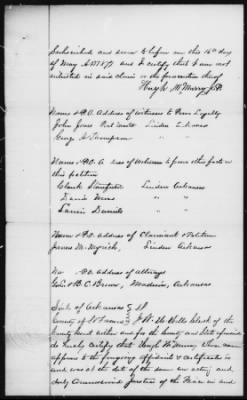 Subscribed and sworn to before me this 16th day
of May A.D. 1871 and I certify that I am not
interested in said claim or the prosecution thereof
Hugh McMurry J.P.
Name & P.O. Address of Witnesses to Prove Loyalty
John Jones Linden Arkansas
George A Thompson
Name & P.O. Address of Witnesses to other facts in
this petition
Clark Linden Arkansas
Davis
Daniels
Name & P.O. Address of Claimant & Petition
James M. Myrick, Linden Arkansas
No P.O. address of attorneys
B.C. Brown, Madison, Arkansas
State of Arkansas } SS
County of St Francis } I Clerk of the
County Court within and for the County and State aforesaid
do hereby certify that Hugh McMurry whose name
appears to the foregoing affidavit & certificate is
and was at the date of the same an acting and
duly Commissioned Justice of the Peace in and